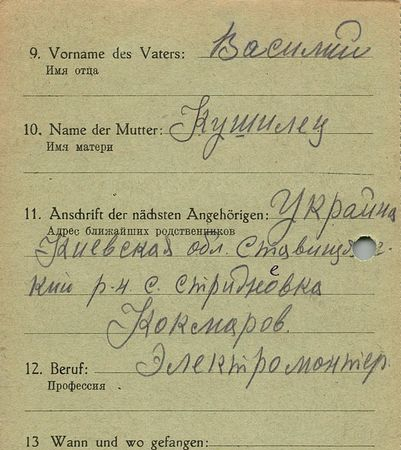 9. Vorname des Vaters: Василий
Имя отца
10. Name der Mutter: Кушилец
Имя матери
11. Anschrift der nächsten Angehörigen: Украина
Адрес ближайших родственников
Киевская обл. Ставищ
кий р-н с. Стрижовка
Кокмаров.
12. Beruf: Электромонтер
Профессия
13 Wann und wo gefangen: